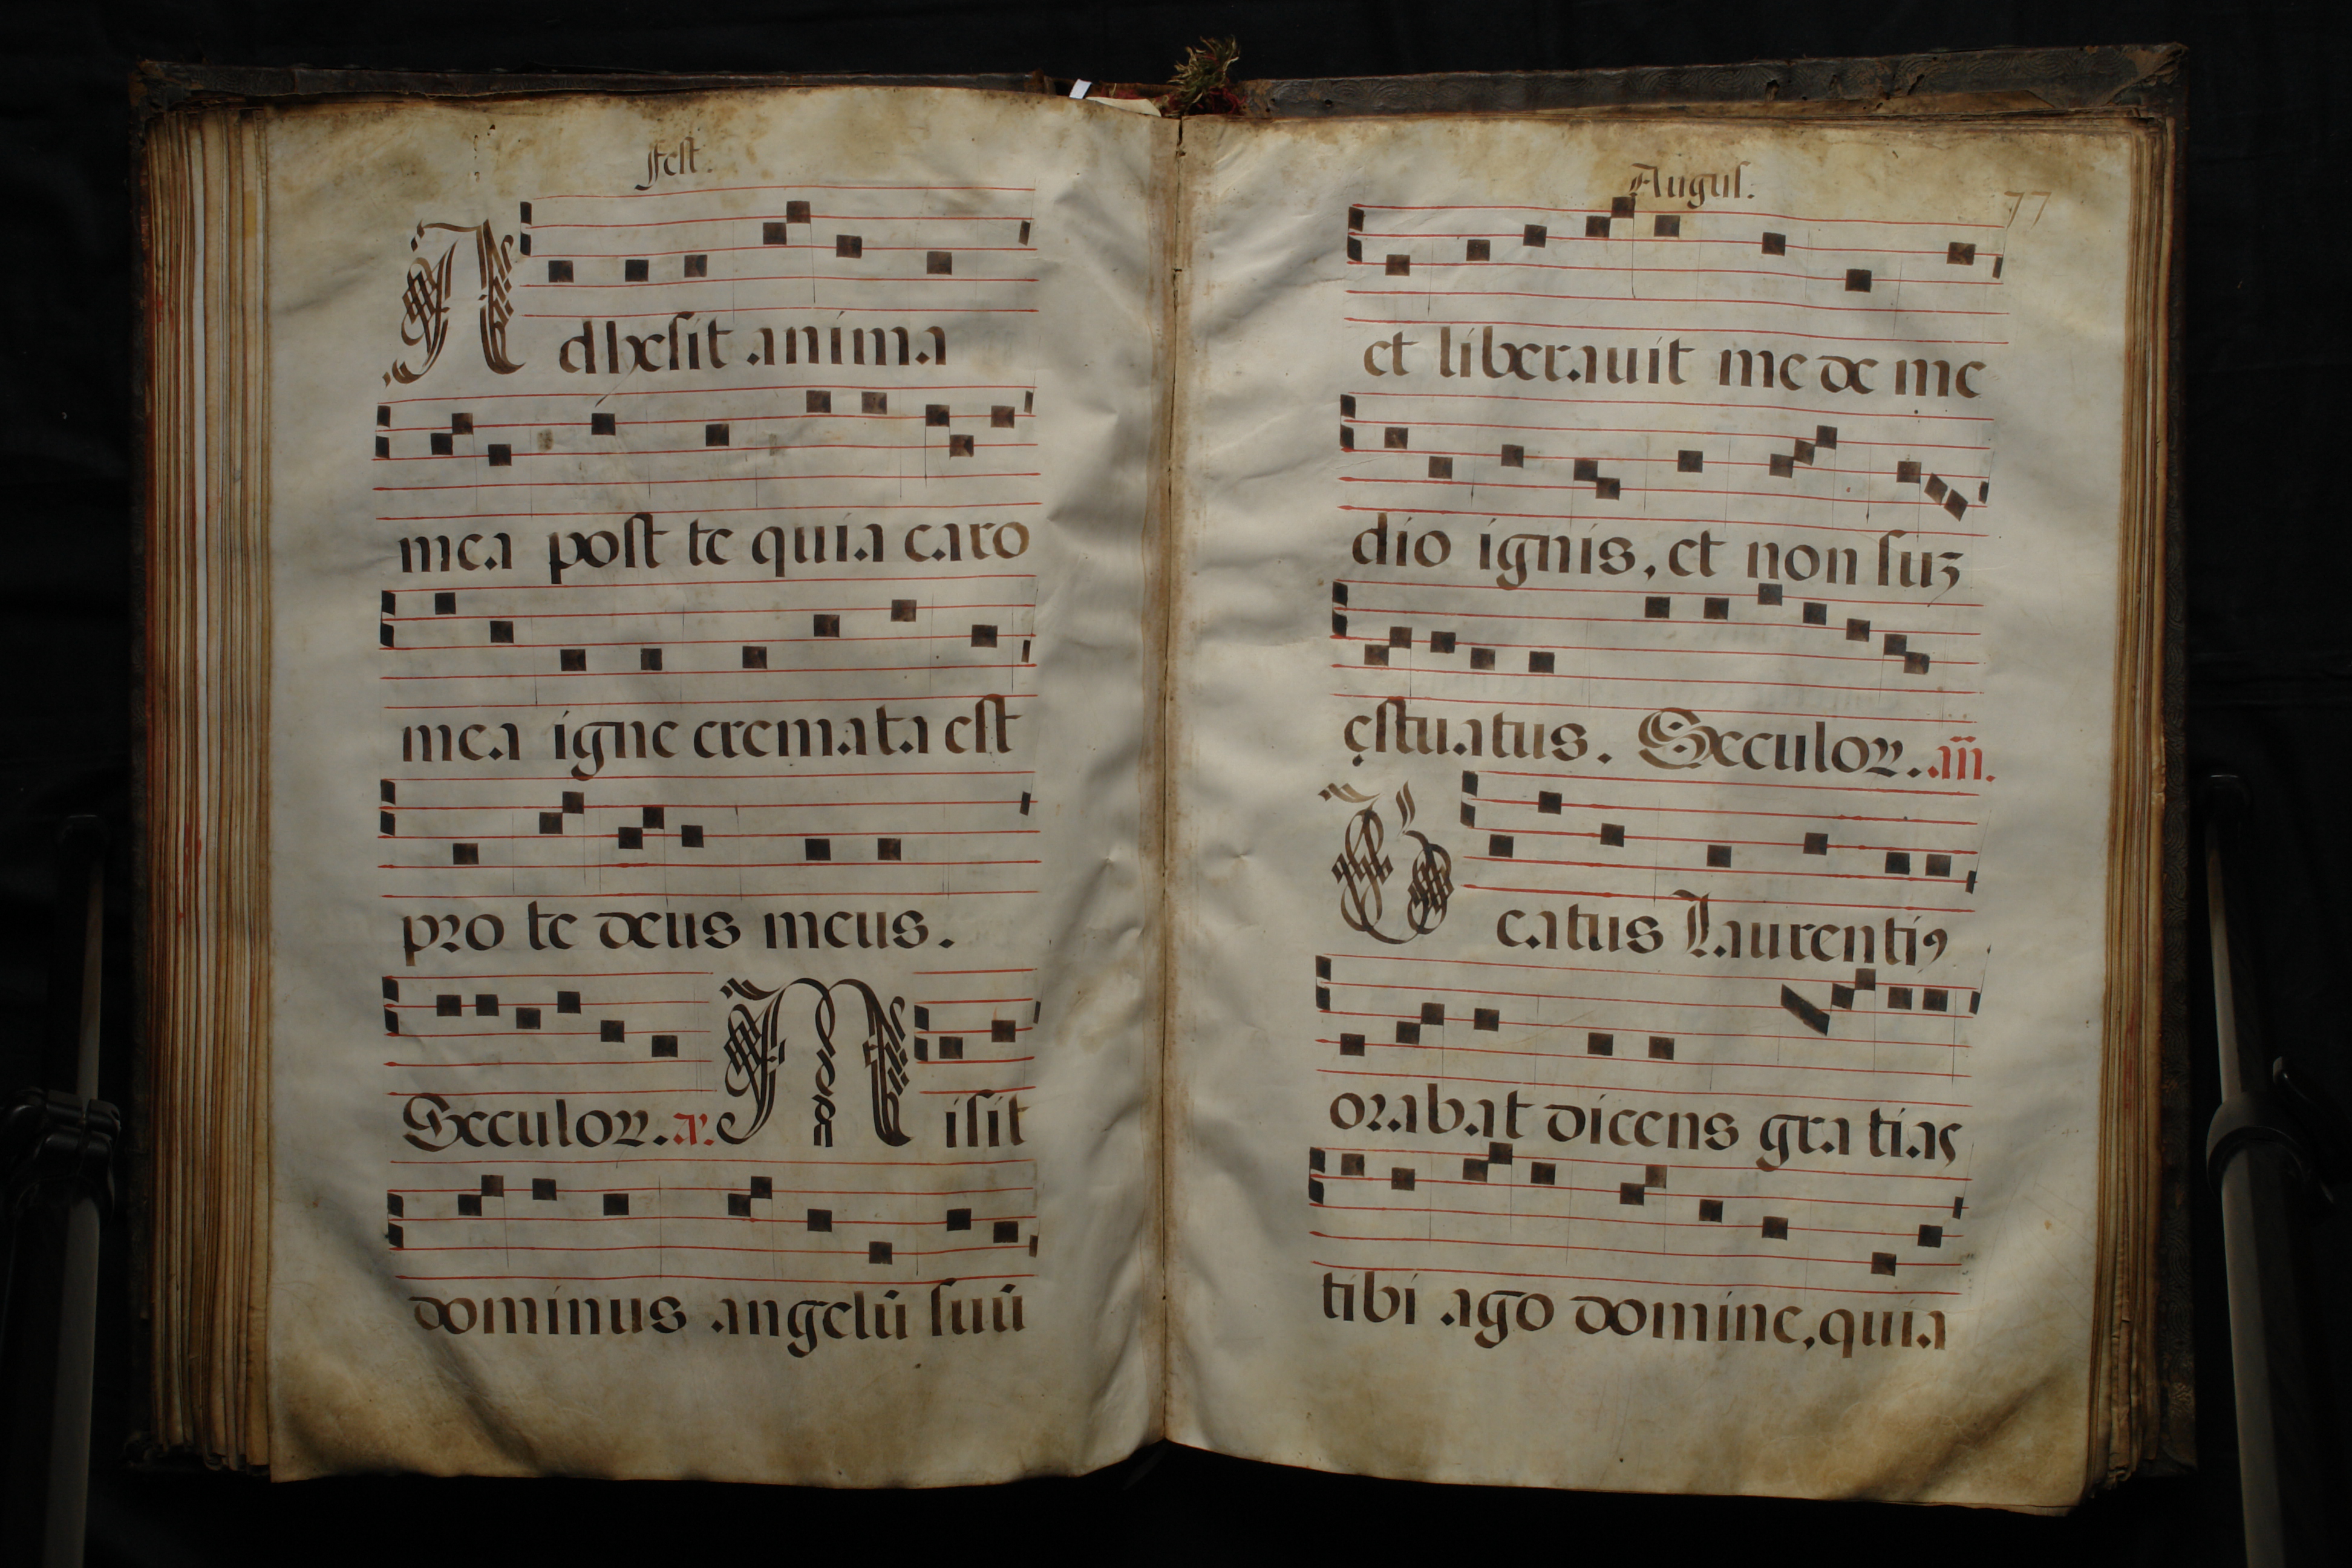 Fest.
Adhesit anima
mea post te quia caro
mea igne cremata est
pro te deus meus.
Seculoꝝ. a. Misit
dominus angelū suū
Augus.
77
et liberauit me de me
dio ignis, et non suꝫ
ęstuatus. Seculoꝝ. añ.
Beatus Laurentiꝰ
orabat dicens gratias
tibi ago domine, quia